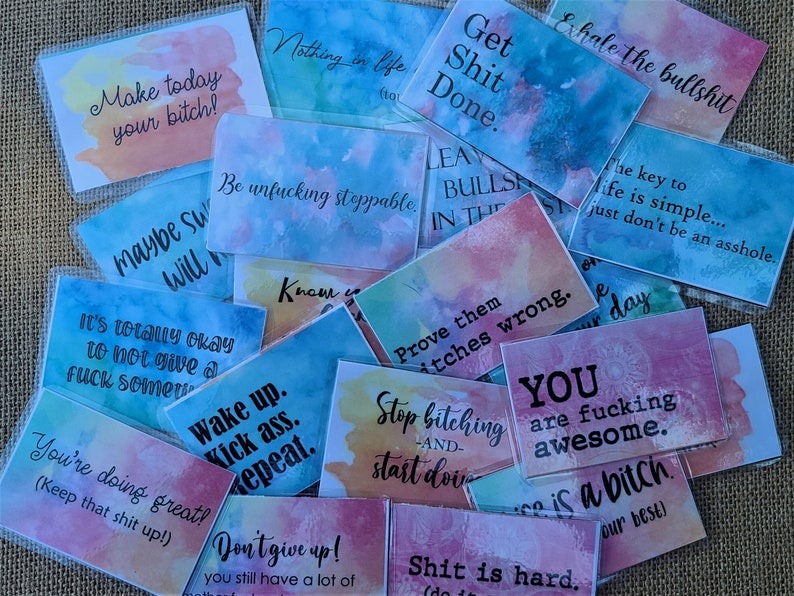 Make today
your bitch!
Nothing in life
(to
Get
Shit
Done.
Exhale the bullshit
Be unfucking stoppable.
LEAV
BULLSH
IN THE
The key to
life is simple...
just don't be an asshole.
maybe sw
will
Know
Prove them
itches wrong.
day
It's totally okay
to not give a
fuck someti
Wake up.
Kick ass.
Repeat.
Stop bitching
-AND-
start doin
YOU
are fucking
awesome.
is a bitch.
your best)
You're doing great!
(Keep that shit up!)
Don't give up!
you still have a lot of
Shit is hard.
(do i